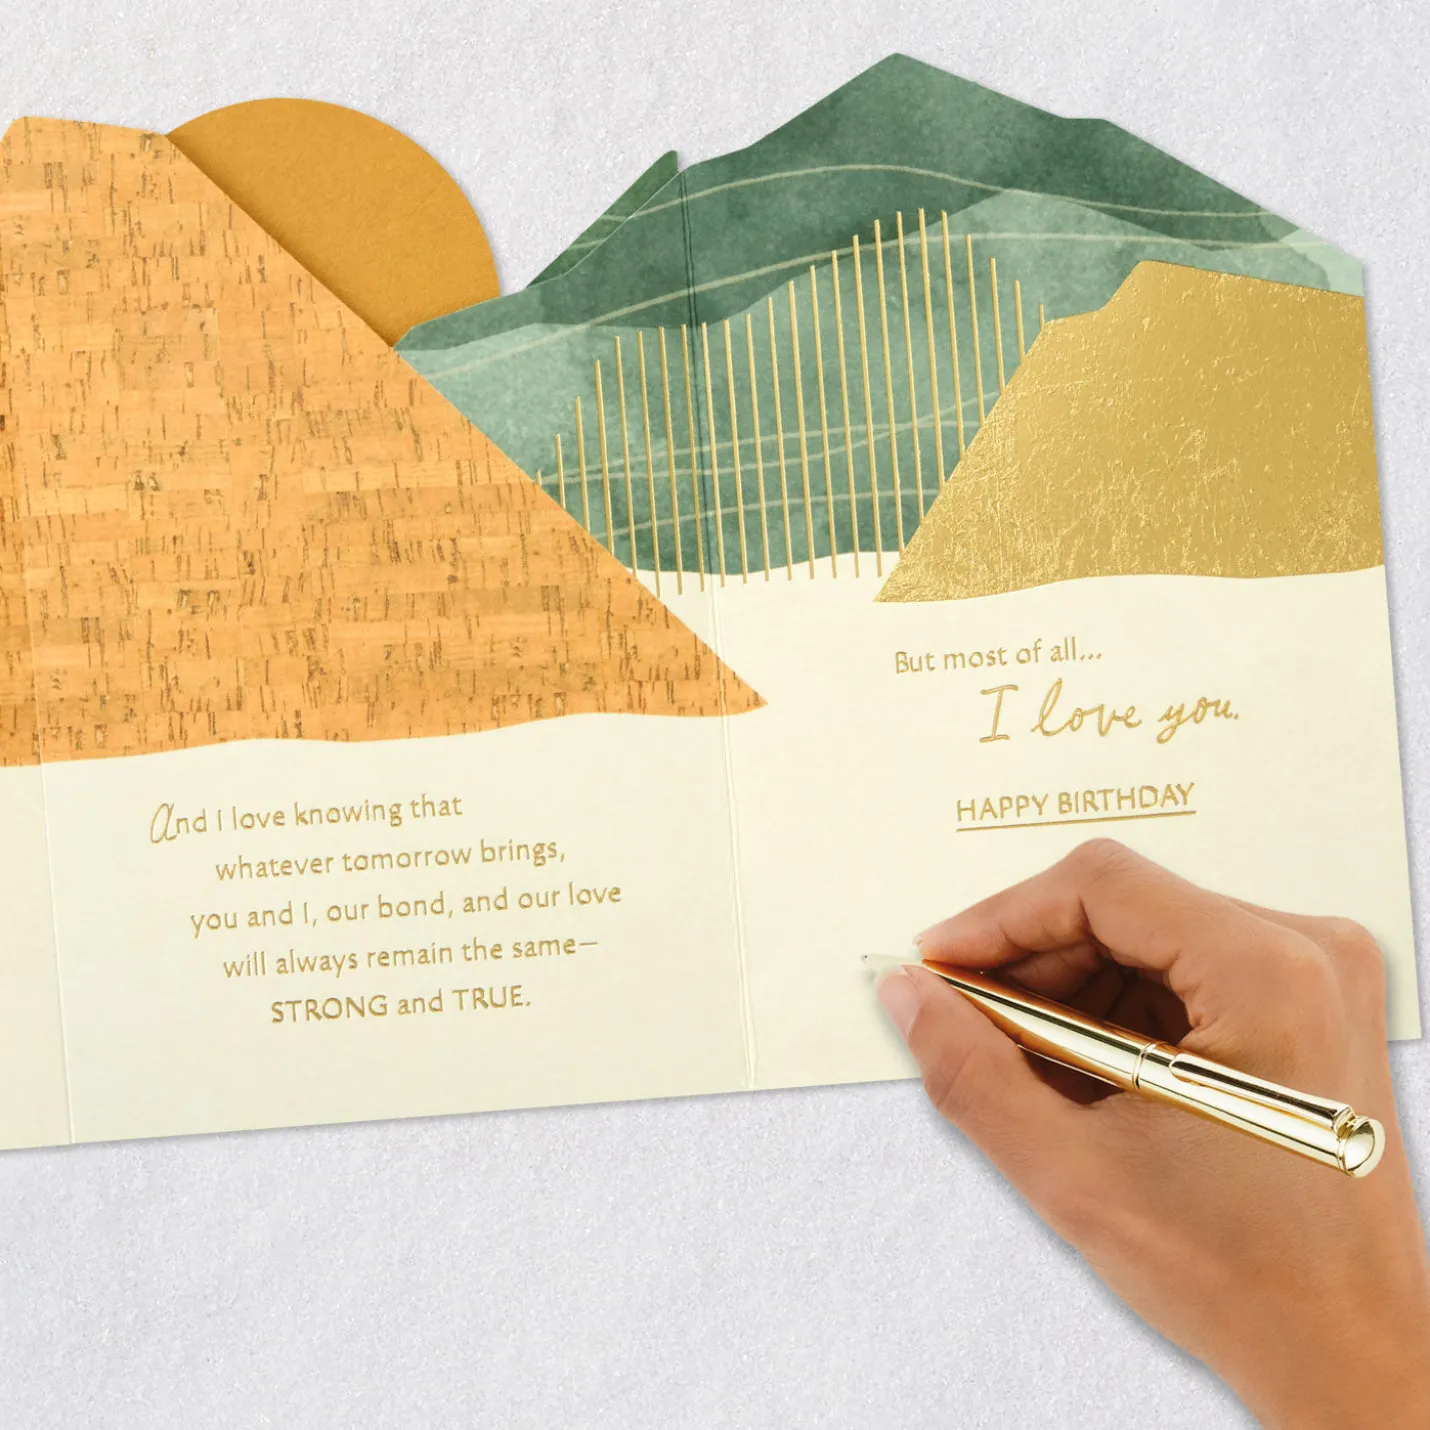 And I love knowing that
whatever tomorrow brings,
you and I, our bond, and our love
will always remain the same—
STRONG and TRUE.
But most of all...
I love you.
HAPPY BIRTHDAY